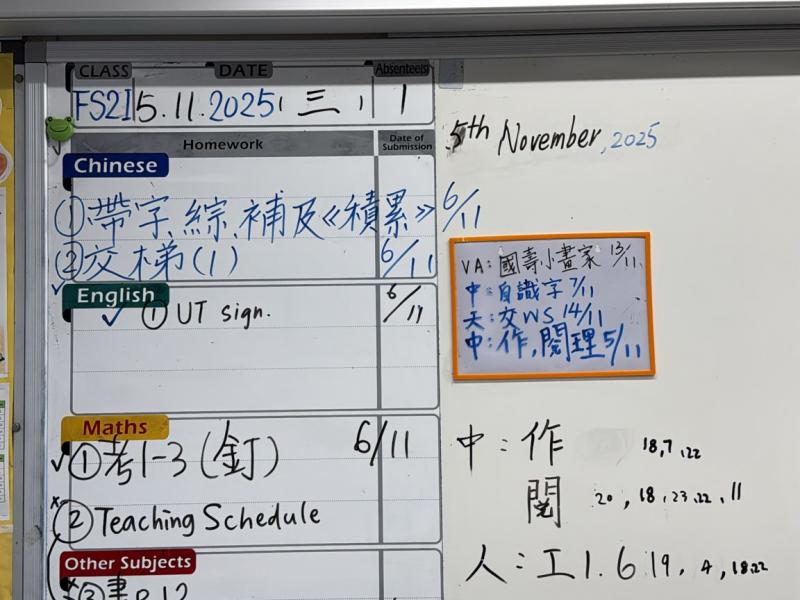 CLASS DATE Absentees
FS2I 5.11.2025, 三, 1
Homework Date of Submission
Chinese
①帶字、綜、補及《積累》 6/11
②交梯(1) 6/11
English
✓ ① UT sign. 6/11
Maths
✓ ①考1-3(釘) 6/11
②Teaching Schedule
Other Subjects
③書P.12
5th November, 2025
VA: 國壽小畫家 13/11
中: 自識字 7/11
天: 交WS 14/11
中: 作,閱理 5/11
中: 作 18,7,22
閱 20, 18, 23, 22, 11
人: 工1. 6 19, 4, 18,22